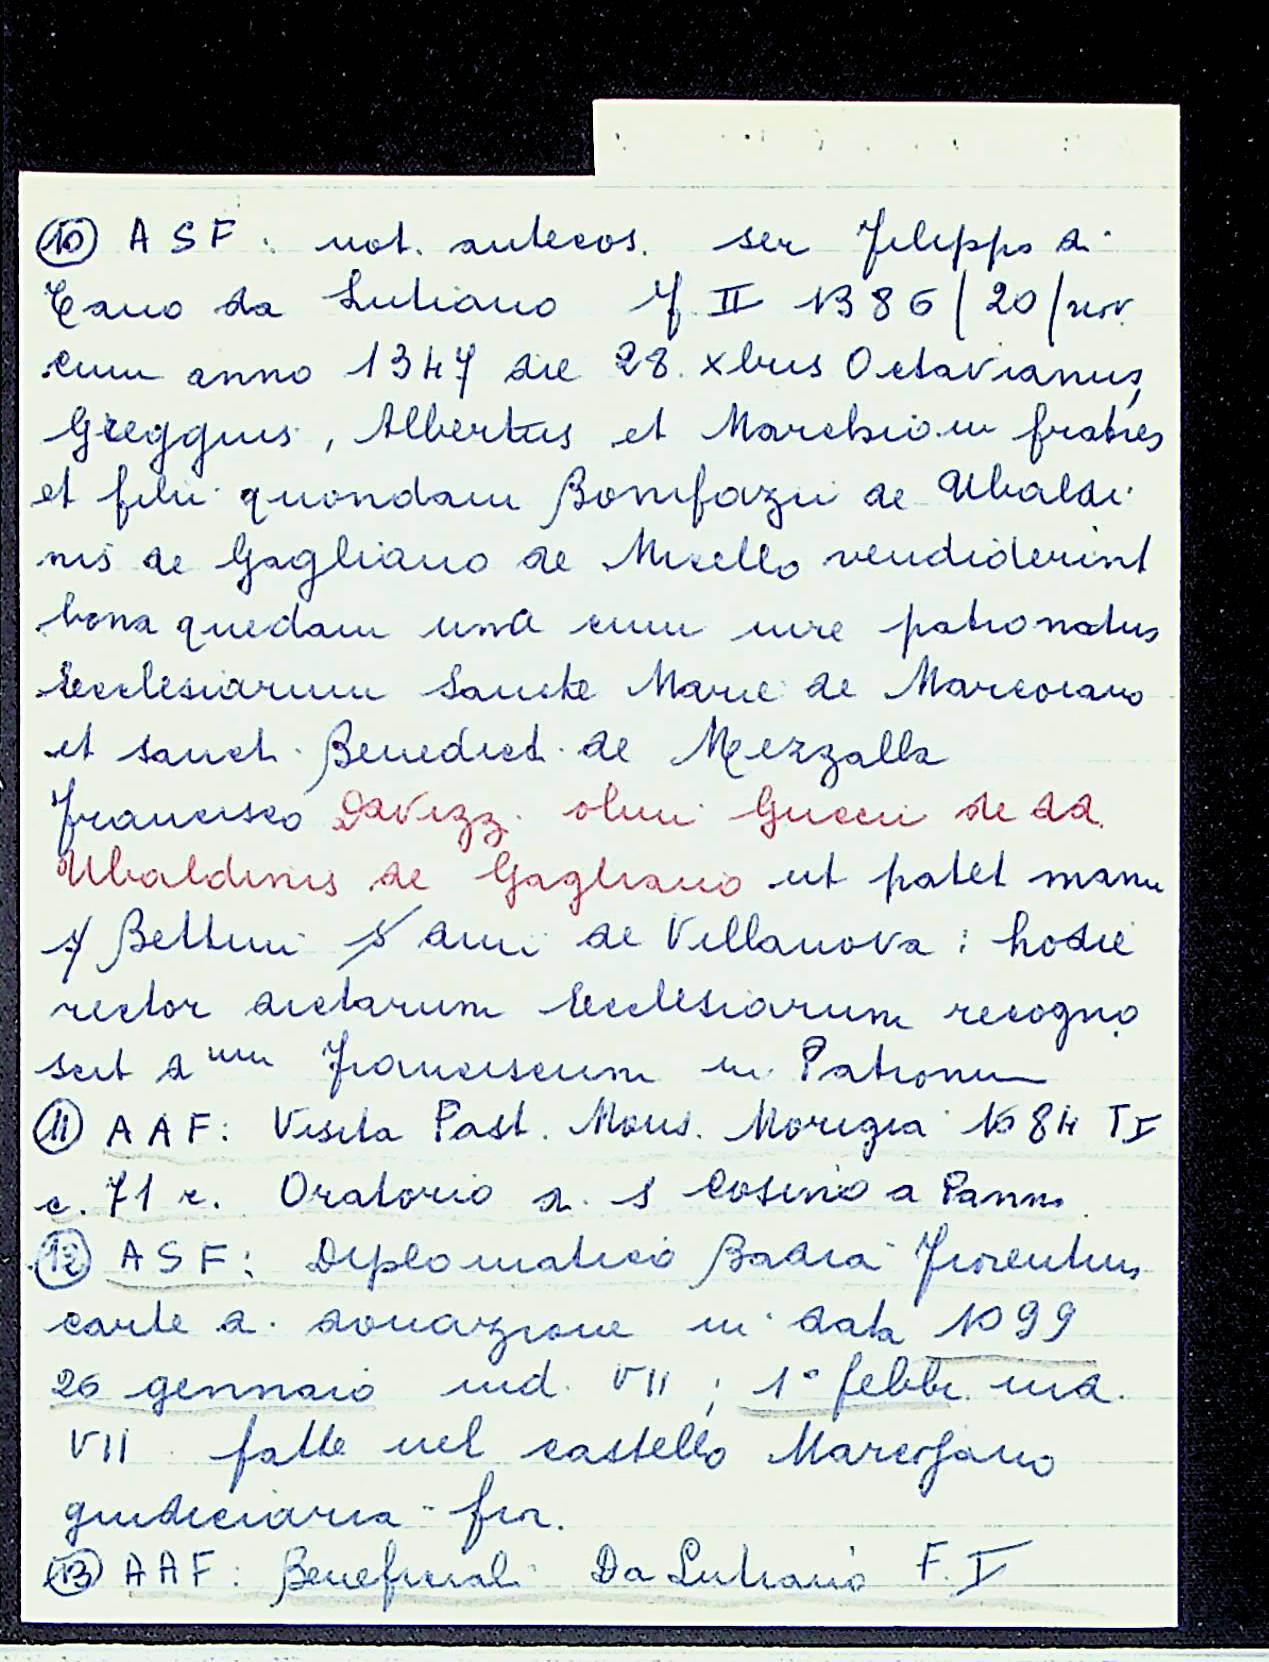 ⑩ ASF: not. antecos. ser Filippo di
Cano da Lutiano f. II 1386/20/nov.
cum anno 1347 die 28. xbris Octavianus,
Greggius, Albertus et Marchion fratres
et filii quondam Bonifazii de Ubaldi
nis de Gagliano de Micello vendiderint
bona quedam una cum iure patronatus
Ecclesiarum Sancte Marie de Marcoiano
et sancti Benedicti de Mezzalla
Francisco Davizzi olim Guccii de dd.
Ubaldinis de Gagliano ut patet manu
s/ Bettini s/ de Villanova: hodie
rector dictarum Ecclesiarum recogno
scit dnum Franciscum in Patronum
⑪ AAF: Visita Past. Mons. Morigia 1684 T.I
c. 71 r. Oratorio di S Cosimo a Panna
⑫ ASF: Diplomatico Badia Fiorentina
carte di donazione in data 1099
26 gennaio ind. VII; 1° febbr. ind.
VII fatte nel castello Marcojano
giudiciaria fior.
⑬ AAF: Beneficiali Da Lutiano F. I